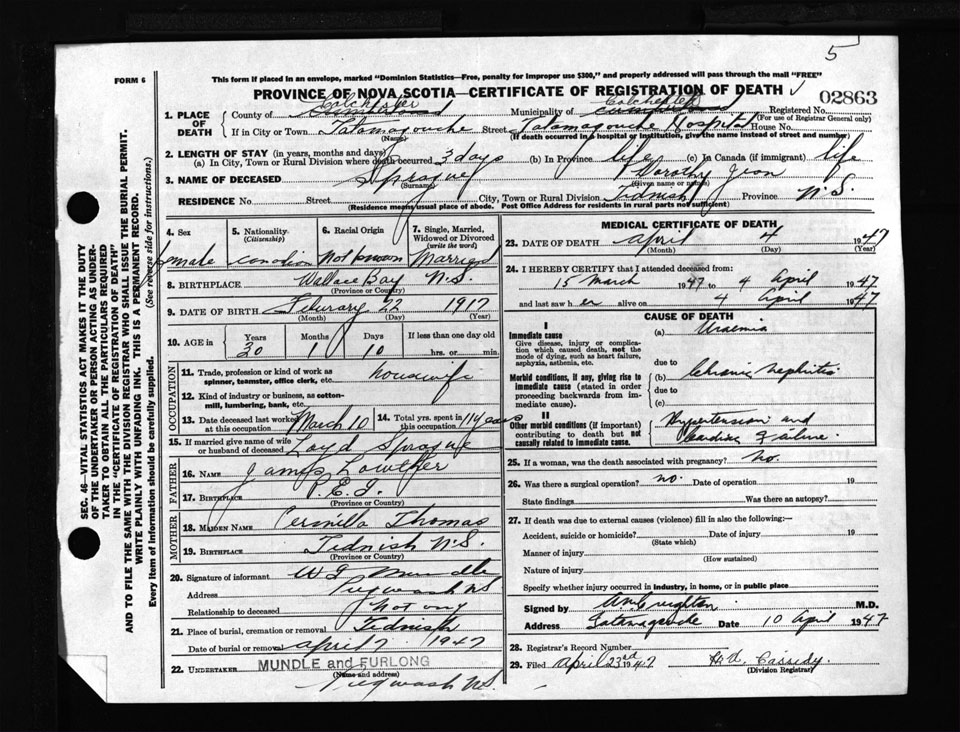 5
FORM 6
This form if placed in an envelope, marked "Dominion Statistics—Free, penalty for improper use $300," and properly addressed will pass through the mail "FREE"
PROVINCE OF NOVA SCOTIA—CERTIFICATE OF REGISTRATION OF DEATH
02863
1. PLACE OF DEATH
County of Colchester Cumberland
Municipality of Colchester Cumberland
Registered No.
(For use of Registrar General only)
If in City or Town Tatamagouche Street Tatamagouche Hospital House No.
(Name) (If death occurred in a hospital or institution, give the name instead of street and number)
2. LENGTH OF STAY (in years, months and days)
(a) In City, Town or Rural Division where death occurred 3 days (b) In Province life (c) In Canada (if immigrant) life
3. NAME OF DECEASED Sprague Dorothy Jean
(Surname) (Given name or names)
RESIDENCE No. Street City, Town or Rural Division Tidnish Province N.S.
(Residence means usual place of abode. Post Office Address for residents in rural parts not sufficient)
4. Sex
female
5. Nationality
(Citizenship)
Canadian
6. Racial Origin
not known
7. Single, Married, Widowed or Divorced
(write the word)
Married
8. BIRTHPLACE Wallace Bay N.S.
(Province or Country)
9. DATE OF BIRTH February 22 1917
(Month) (Day) (Year)
10. AGE in Years Months Days If less than one day old
30 1 10 hrs. or min.
OCCUPATION
11. Trade, profession or kind of work as spinner, teamster, office clerk, etc. housewife
12. Kind of industry or business, as cotton-mill, lumbering, bank, etc.
13. Date deceased last worked at this occupation March 10
14. Total yrs. spent in this occupation 11 years
15. If married give name of wife or husband of deceased Loyd Sprague
FATHER
16. NAME James Lowther
17. BIRTHPLACE P.E.I.
(Province or Country)
MOTHER
18. MAIDEN NAME Thomas
19. BIRTHPLACE Tidnish N.S.
(Province or Country)
20. Signature of informant Mundle
Address Pugwash NS
Relationship to deceased not any
21. Place of burial, cremation or removal Tidnish
Date of burial or removal April 7 1947
22. UNDERTAKER MUNDLE and FURLONG
(Name and address)
Pugwash N.S.
MEDICAL CERTIFICATE OF DEATH
23. DATE OF DEATH April 4 1947
(Month) (Day) (Year)
24. I HEREBY CERTIFY that I attended deceased from:
15 March 1947 to 4 April 1947
and last saw her alive on 4 April 1947
CAUSE OF DEATH
I
Immediate cause
Give disease, injury or complication which caused death, not the mode of dying, such as heart failure, asphyxia, asthenia, etc.
(a) Uraemia
due to
Morbid conditions, if any, giving rise to immediate cause (stated in order proceeding backwards from immediate cause).
(b) Chronic nephritis
due to
(c)
II
Other morbid conditions (if important) contributing to death but not causally related to immediate cause.
Hypertension and Cardiac Failure.
25. If a woman, was the death associated with pregnancy? no.
26. Was there a surgical operation? no. Date of operation 19
State findings Was there an autopsy?
27. If death was due to external causes (violence) fill in also the following:—
Accident, suicide or homicide? Date of injury 19
(State which)
Manner of injury
(How sustained)
Nature of injury
Specify whether injury occurred in industry, in home, or in public place
Signed by Creighton M.D.
Address Tatamagouche Date 10 April 1947
28. Registrar's Record Number
29. Filed April 23rd 1947 Cassedy
(Division Registrar)
SEC. 46—VITAL STATISTICS ACT MAKES IT THE DUTY OF THE UNDERTAKER OR PERSON ACTING AS UNDERTAKER TO OBTAIN ALL THE PARTICULARS REQUIRED IN THE "CERTIFICATE OF REGISTRATION OF DEATH" AND TO FILE THE SAME WITH THE DIVISION REGISTRAR WHO SHALL ISSUE THE BURIAL PERMIT.
WRITE PLAINLY WITH UNFADING INK. THIS IS A PERMANENT RECORD.
Every item of information should be carefully supplied. (See reverse side for instructions.)